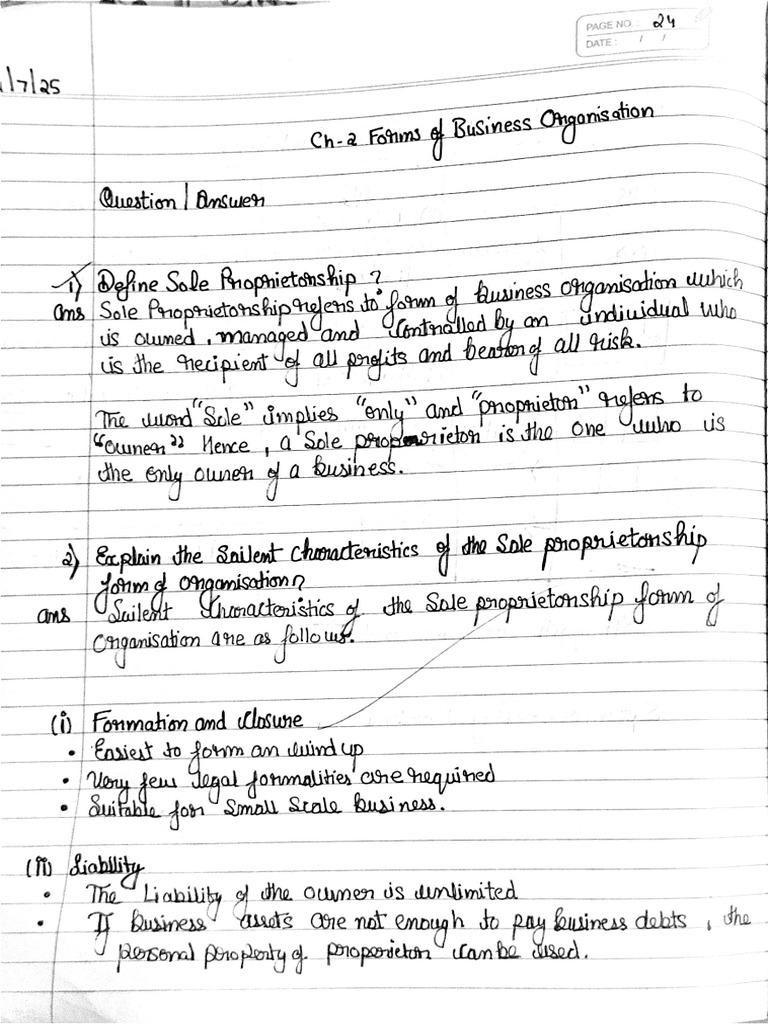 PAGE NO.: 24
DATE: / /
/7/25
Ch-2 Forms of Business Organisation
Question / Answer
1) Define Sole Proprietorship ?
ans Sole Proprietorship refers to form of business organisation which
is owned, managed and controlled by an individual who
is the recipient of all profits and bearer of all risk.
The word "Sole" implies "only" and "proprietor" refers to
"owner" Hence, a Sole proporietor is the one who is
the only owner of a business.
2) Explain the Sailent Characteristics of the Sole proprietorship
form of organisation?
ans Sailent Characteristics of the Sole proprietorship form of
organisation are as follows.
(i) Formation and closure
• Easiest to form an wind up
• Very few legal formalities are required
• Suitable for Small Scale business.
(ii) Liability
• The Liability of the owner is unlimited
• If business assets are not enough to pay business debts, the
personal property of properietor can be used.